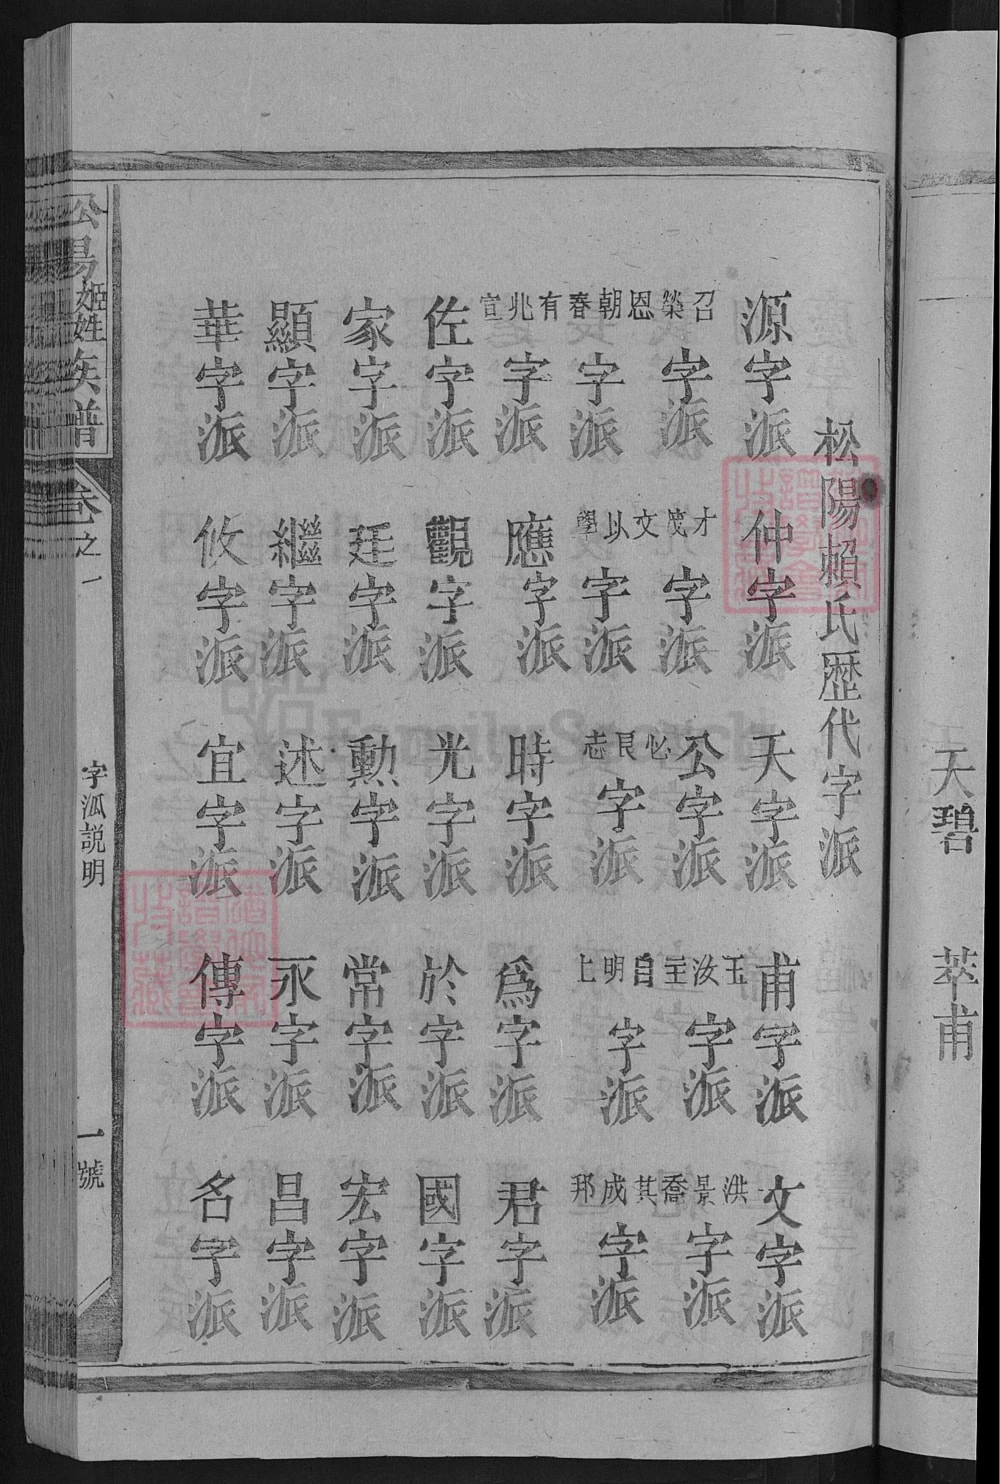 天碧 萃甫
松陽賴氏歴代字派
源字派 仲字派 天字派 甫字派 文字派
召榮恩字派 才茂文字派 公字派 玉汝主字派 洪景喬字派
朝春字派 以學字派 必良志字派 自明上字派 其成邦字派
有兆宣字派 應字派 時字派 爲字派 君字派
佐字派 觀字派 光字派 於字派 國字派
家字派 廷字派 勳字派 常字派 宏字派
顯字派 繼字派 述字派 永字派 昌字派
華字派 攸字派 宜字派 傳字派 名字派
松陽姬姓族譜 卷之一 字派説明 一號
FamilySearch